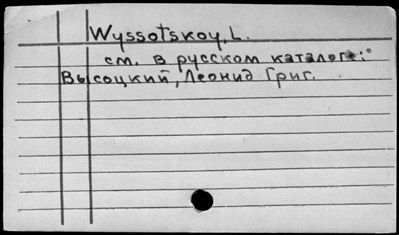 Wyssotskoy, L.
см. в русском каталоге:
Высоцкий, Леонид Григ.